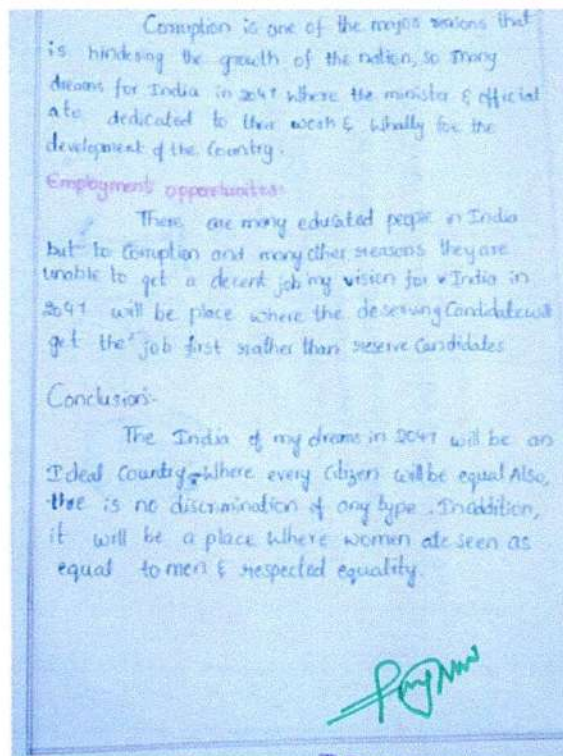 Corruption is one of the major reasons that
is hindering the growth of the nation, so many
dreams for India in 2047 where the minister & official
ate dedicated to their work & whally for the
development of the Country.
Employment opportunites:
There are many educated people in India
but to Corruption and many other reasons they are
unable to get a decent job my vision for India in
2047 will be place where the deserving Candidate will
get the job first rather than reserve Candidates
Conclusion:-
The India of my dreams in 2047 will be an
Ideal Country, Where every Citizen will be equal Also,
thre is no discrimination of any type. Inaddition,
it will be a place where women ate seen as
equal to men & respected equality.